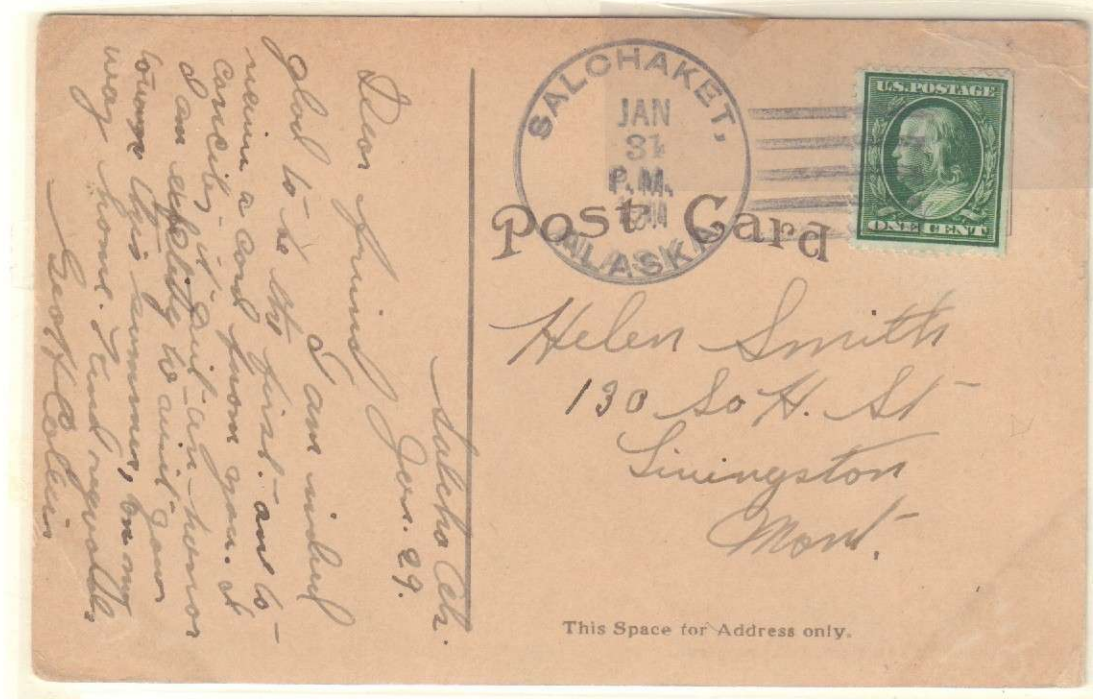 Salcha Ak.
Jan. 29.
Dear friend
I am indeed
glad to be the first and to
receive a card from you. I
consider it quite an honor
I am to visit your
town this summer, on my
way home. Kind regards,
Geo H Collin
SALCHAKET,
JAN
31
P.M.
1911
ALASKA
U.S. POSTAGE
ONE CENT
Post Card
Helen Smith
130 So H. St
Livingston
Mont.
This Space for Address only.